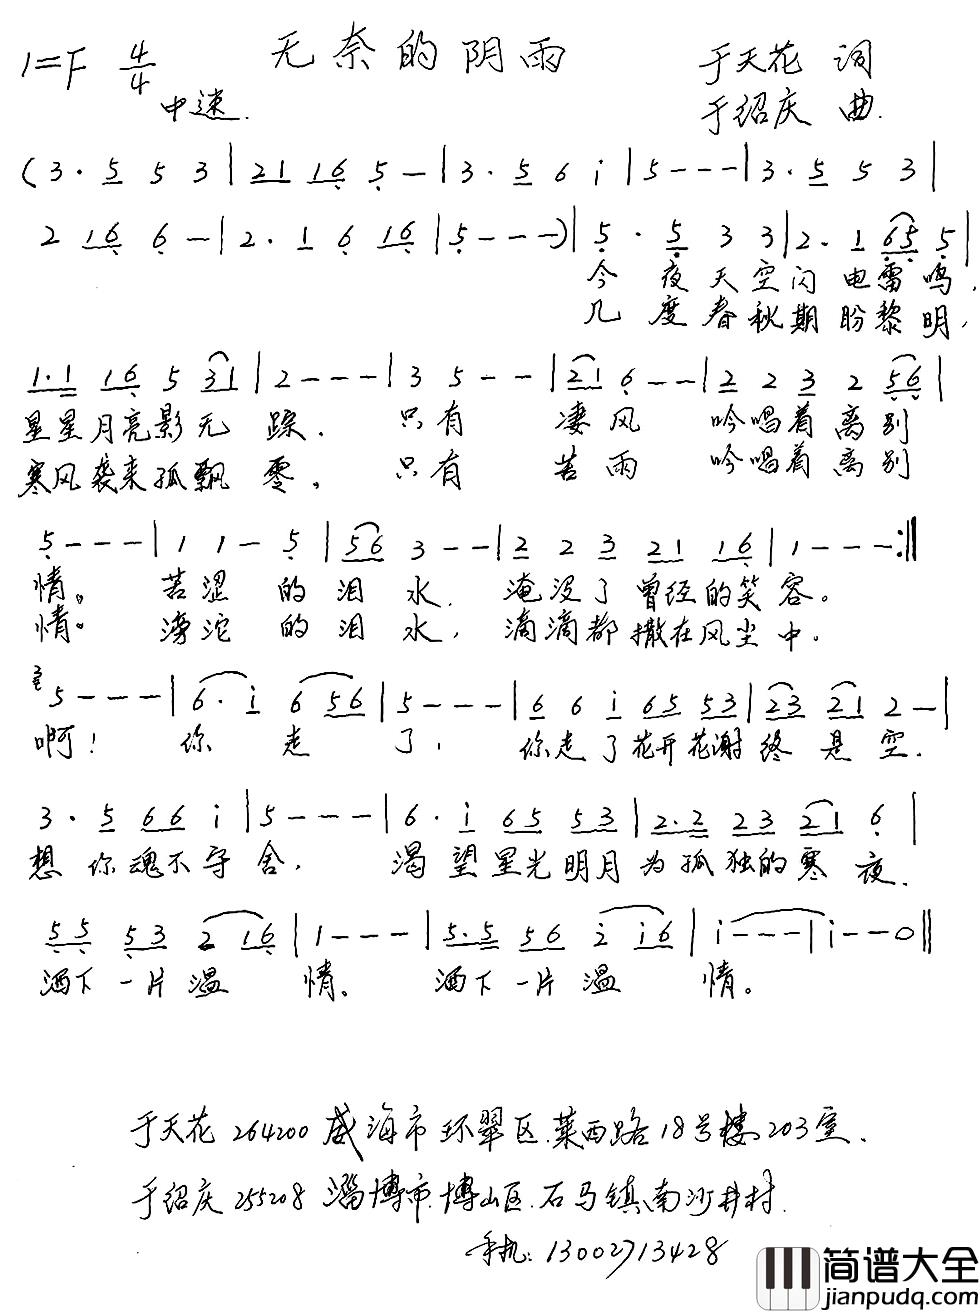 1=F 4/4 无奈的阴雨 于天花 词
中速. 于绍庆 曲.
(3· 5 5 3 | 21 16 5 — | 3· 5 6 i | 5 - - - | 3· 5 5 3 |
2 16 6 — | 2· 1 6 16 | 5 - - -) | 5· 5 3 3 | 2· 1 65 5 |
今夜天空闪电雷鸣,
几度春秋期盼黎明,
1·1 16 5 31 | 2 - - - | 3 5 - - | 21 6 - - | 2 2 3 2 56 |
星星月亮影无踪. 只有凄风吟唱着离别
寒风袭来孤飘零。只有苦雨吟唱着离别
5 - - - | 1 1 - 5 | 56 3 - - | 2 2 3 21 16 | 1 - - - :||
情。苦涩的泪水, 淹没了曾经的笑容。
情。滂沱的泪水, 滴滴都撒在风尘中.
3 5 - - - | 6· i 6 56 | 5 - - - | 6 6 i 65 53 | 23 21 2 — |
啊! 你走了, 你走了花开花谢终是空.
3· 5 66 i | 5 - - - | 6· i 65 53 | 2·2 23 21 6 |
想你魂不守舍, 渴望星光明月为孤独的寒夜.
55 53 2 16 | 1 - - - | 5·5 56 2 i6 | i - - - | i - - 0 ||
洒下一片温情。洒下一片温情。
于天花 264200 威海市环翠区.莱西路18号楼203室.
于绍庆 255208 淄博市.博山区.石马镇南沙井村.
手机: 13002713428
简谱大全
jianpudq.com